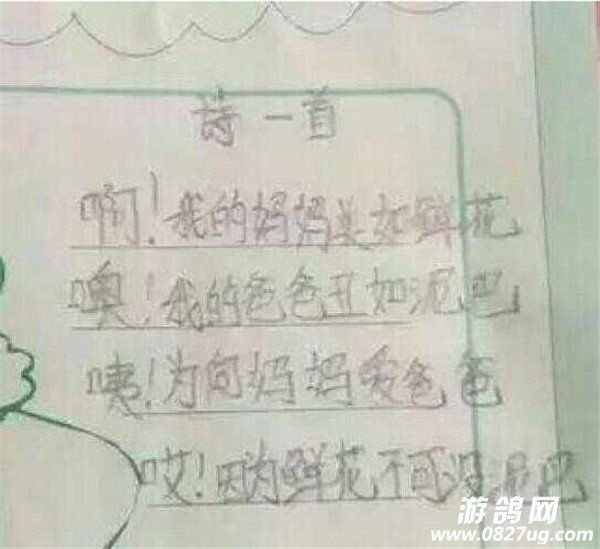 诗一首
啊!我的妈妈美如鲜花
噢!我的爸爸丑如泥巴
咦!为何妈妈爱爸爸
哎!因为鲜花不可没泥巴
游鸽网
www.0827ug.com